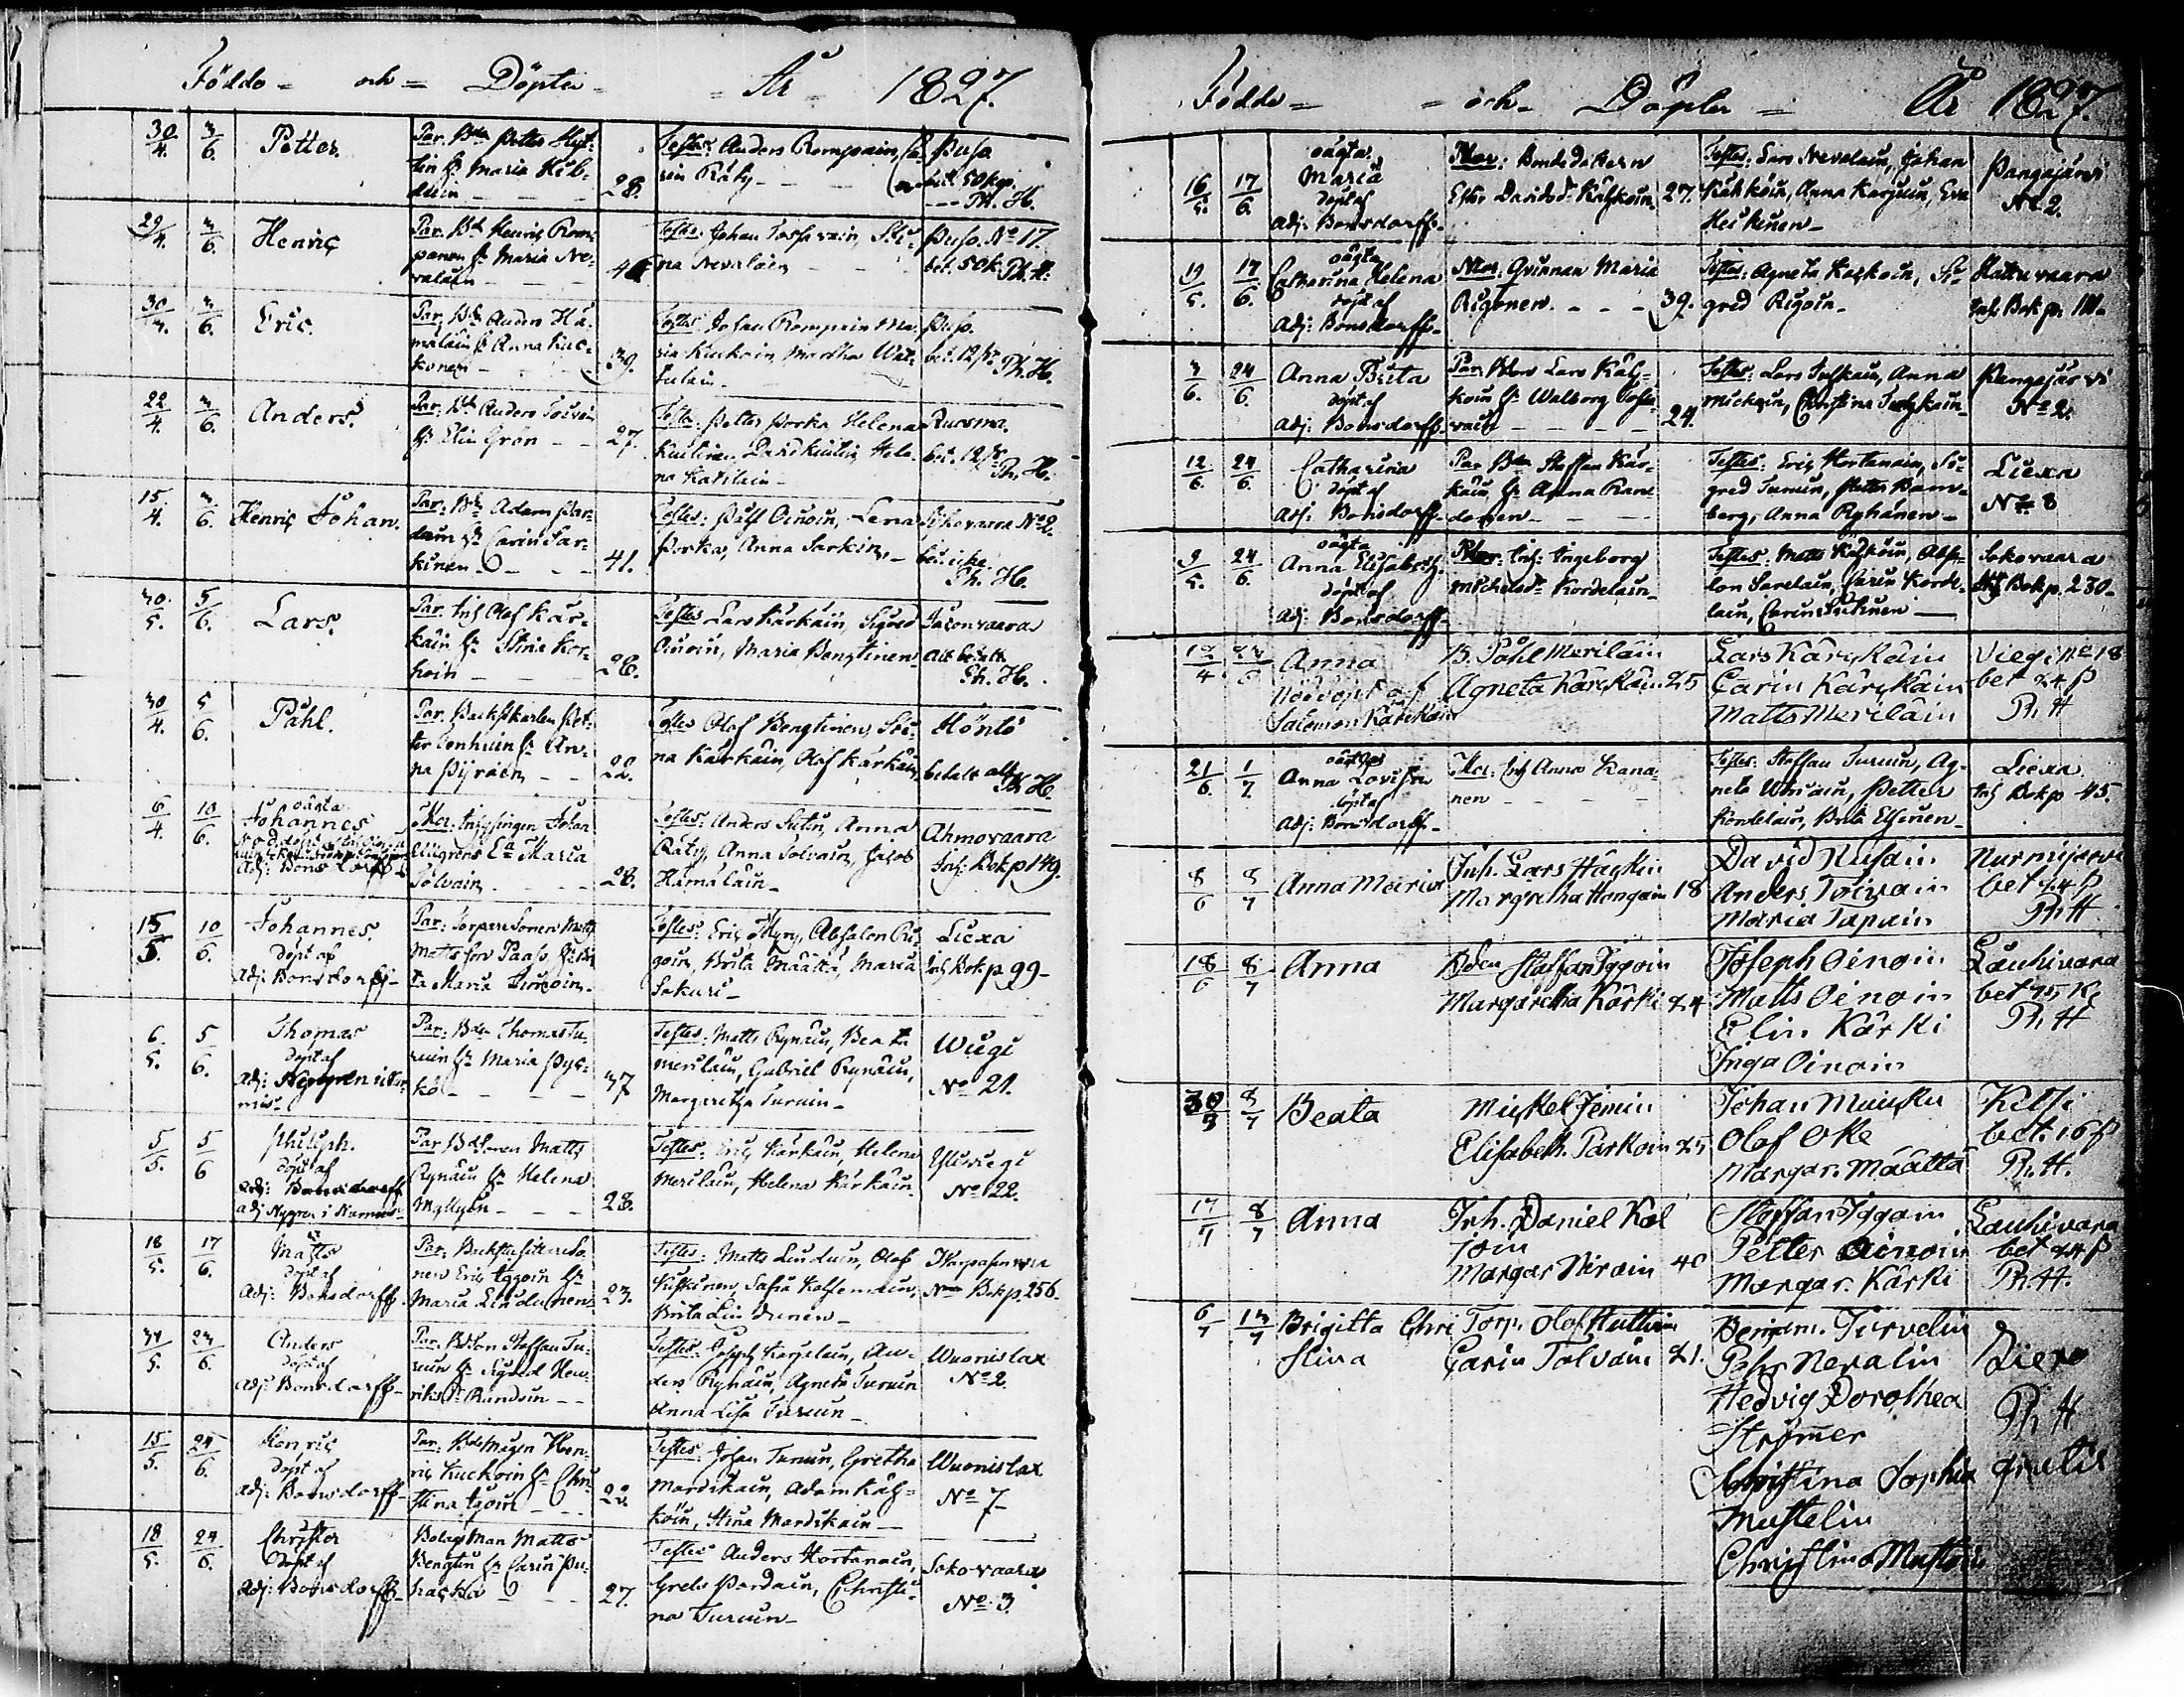 Födde - och - Döpte - År - 1827.
30/4. 3/6. Petter. Par. Bdn Petter Hyt-
tin H. Maria Hib-
28.
Testes: Anders Rompain, Ca-
rin Räty
Puso.
bet. 50 kop.
Th. H.
29/4. 3/6. Henriç Par. Bd Henriç Rom-
panen H. Maria Ne-
valain
Testes: Johan Tossavain, Sti-
na Nevalain
Puso. No 17.
bet. 50 k. Th. H.
30/4. 3/6. Eric. Par. Bdn Anders Hä-
mäläin H. Anna Kuc-
konen 39.
Testes Johan Rompain Ma-
ria Kuckoin, Martha Wat-
tulain
Puso.
bet. 12 s. Th. H.
22/4. 3/6. Anders. Par. Bd Anders Toivain
H. Elin Grön 27.
Testes: Petter Porka Helena
na Katilain
Ruosma.
bet. 12 s.
Th. H.
15/4. 3/6. Henriç Johan. Par: Bd Adam Par-
dain H. Carin Sar-
kinen 41.
Testes: Oinoin, Lena
Porka, Anna Sarkin,
Sikovaara No 2.
bet. icke.
Th. H.
30/5. 5/6. Lars. Par. Inh Olof Kär-
käin H. Stina Kor-
hoin 28.
Testes Lars Kärkäin, Sigred
Oinoin, Maria Bengtinen
Jaconvaara
allt betalt
Th. H.
30/4. 5/6. Påhl. Par.
H. An-
na Pÿräen 22.
Testes Olof Bengtinen, Sti-
na Kärkäin, Olof Kärkäin,
Höntö
betalt allt
Th. H.
6/4. 10/6. oägta
Johannes
Adj: Bonsdorff
Johan
Maria
Tolvain 28.
Testes: Anders Sutin, Anna
Räty, Anna Tolvain, Jacob
Hämäläin
Ahmovaara
Inh: Bok p 149.
15/5. 10/6. Johannes.
döpt af
Adj: Bonsdorff
Par: Torpare Sonen Matts
Mattsson Paaso. H. Bri-
ta Maria Turoin
Testes: Eric Myry, Absalon Ri-
goin, Brita Määttä, Maria
Sakuri
Liexa
Inh Bok p 99
6/5. 5/6. Thomas
döpt af
Adj: Nygren i Nur-
mis
Par: Bdn Thomas Tu-
ruin H. Maria Pyk-
kö 37
Testes: Matts Rynäin, Beata
Meriläin, Gabriel Rynäin,
Margaretha Turuin
Wiegi
No 21.
5/5. 5/6 Philiph.
döpt af
Adj: Bonsdorff
adj Nygren i Nurmis
Par Bd Sonen Matts
Rynäin H. Helena
Myllyen 28.
Testes: Eriç Kärkäin, Helena
Meriläin, Helena Kärkäin
Ylwiegi
No 22.
18/5. 17/6. Matts
döpt af
Adj: Bonsdorff
Par: Backstusittare So-
nen Eriç Iggoin H.
Maria Lindunen 23.
Testes: Matts Linduin, Olof
Kiiskinen, Safia Kolhemain,
Brita Lindunen
Bok p. 256.
31/5. 23/6. Anders
döpt af
Adj. Bonsdorff
Par. Bd Son Staffan Tu-
ruin H. Sigred Hen-
riks Dr
Testes: Joseph Karjelain, An-
ders Rynäin, Agneta Turuin
Anna Lisa Turuin
Wuonislax
No 2.
15/5. 24/6. Henriç
döpt af
Adj. Bonsdorff
Par. Bd Mågen Hen-
riç Kuckoin H. Chri-
stina Iggoin 22.
Testes: Johan Turuin, Gretha
Mardikain, Adam Käh-
köin, Stina Mardikain
Wuonislax
No 7
18/5. 24/6. Christer
döpt af
Adj: Bonsdorff
Bolags Man Matts
Bengtin H. Carin Pu-
hacka 27.
Testes Anders Hortanain,
Greta Pardain, Christi-
na Turuin
Sokovaara
No 3.
Födde - och - Döpte - År 1827.
16/5. 17/6. oägta
Maria
döpt af
Adj: Bonsdorff
Mor: Bonde Dottern
Ester Davids Dr Kähköin 27.
Testes: Lars Nevalain, Johan
Kähköin, Anna Karjuin, Eva
Heiskinen
Pangajärvi
No 2.
19/5. 17/6. oägta
Catharina Helena
döpt af
Adj: Bonsdorff
Mor: Qvinnan Maria
Rigonen. 39.
Testes: Agneta Kackoin, Si-
gred Rigoin
Hattuvaara
Inh. Bok p. 111
3/6. 24/6 Anna Brita
döpt af
Adj: Bonsdorff
Par. Bden Lars Käh-
köin H. Walborg Tossa-
vain 24.
Testes: Lars Tuskain, Anna
Mickoin, Christina Turpkain
Pangajärvi
No 2.
12/6. 24/6. Catharina
döpt af
Adj: Bonsdorff
Par. Bdn Staffan Kär-
käin H. Anna Ran-
donen
Testes: Eriç Hortanain, Si-
gred Turuin, Petter Ram-
berg, Anna Ryhänen
Liexa
No 8
9/5. 24/6. oägta
Anna Elisabeth.
döpt af
Adj: Bonsdorff
Mor: Inh: Ingeborg
Michels Dr Kordelain
Testes: Matts Kähköin, Absa-
lon Sarelain, Carin Korde-
lain, Carin Suhuen
Sokovaara
Inh Bok p. 230
12/4 Anna
Nöddöpt af
Salemon Kärckäin
B. Påhl Meriläin
Agneta Kärckäin 25
Lars Kärckäin
Carin Kärckäin
Matts Meriläin
Viegi No 18
bet 24 s
Th. H
21/6. 1/7. oägta
Anna Lovisa
döpt af
Adj: Bonsdorff
Mor: Inh Anna Kana-
nen
Testes: Staffan Turuin, Ag-
neta Wariain, Petter
Kordelain, Brita Elhinen
Liexa
Inh Bok p 45.
8/6 8/7 Anna Maria
Inh. Lars Häckin
Margretha Hongain 18
David Nusain
Anders Toivain
Maria Tapain
Nurmijärvi
bet 24 s
Th. H
18/6 8/7 Anna
Bden Staffan Iggoin
Margaretha Kärki 24
Joseph Oinoin
Matts Oinoin
Elin Kärki
Inga Oinoin
Lauhivara
bet 75 K
Th. H
30/5 8/7 Beata
Mickel Jemin
Elisabeth. Parkoin 25
Johan Muicku
Olof Oke
Margar. Määttä
Kitsi
bet. 16 s
Th. H.
17/7 8/7 Anna
Inh. Daniel Kol
join
Margar Nirain 40
Staffan Iggoin
Petter Oinoin
Margar. Kärki
Lauhivara
bet 24 s
Th. H.
6/7 13/7 Brigitta Chri
stina
Torp. Olof Huttuin
Carin Tolvain 21.
Benjam. Turvelin
Pehr Nevalin
Hedvig Dorothea
Strömer
Christina Sophia
Mustelin
Christina Mustoin
Liexa
Th. H
gratis